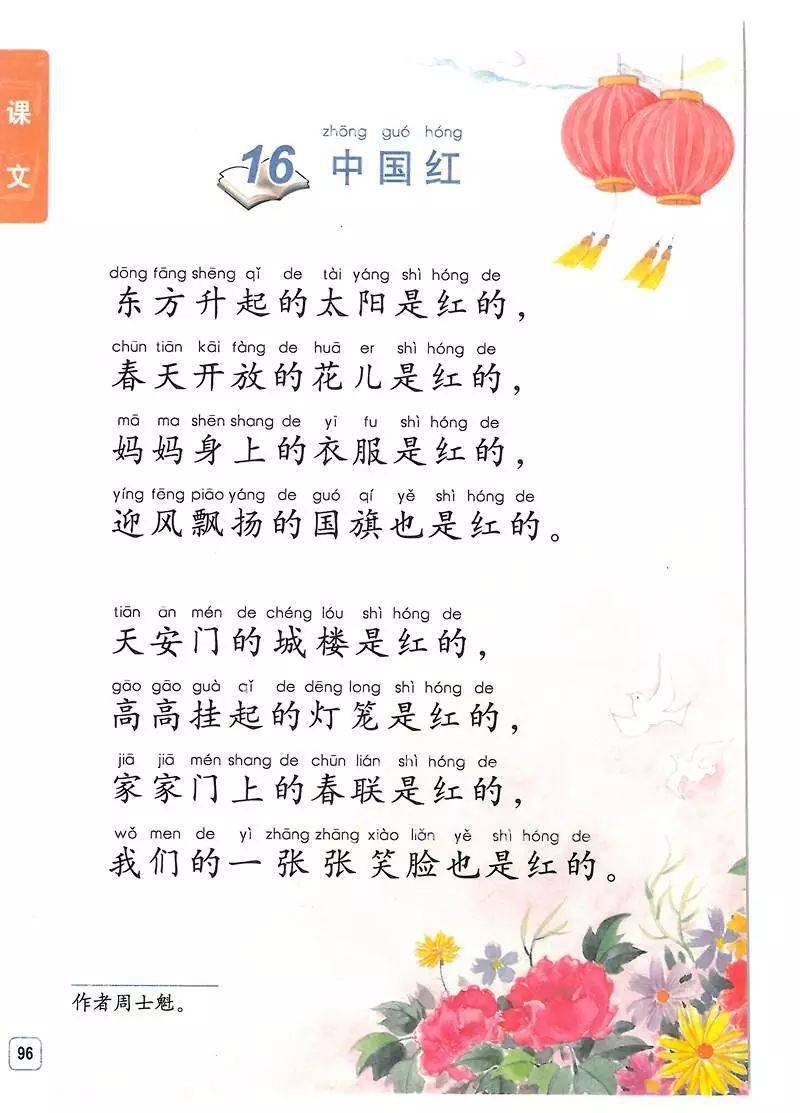 课文
zhōng guó hóng
16 中国红
dōng fāng shēng qǐ de tài yáng shì hóng de
东方升起的太阳是红的，
chūn tiān kāi fàng de huā er shì hóng de
春天开放的花儿是红的，
mā ma shēn shang de yī fu shì hóng de
妈妈身上的衣服是红的，
yíng fēng piāo yáng de guó qí yě shì hóng de
迎风飘扬的国旗也是红的。
tiān ān mén de chéng lóu shì hóng de
天安门的城楼是红的，
gāo gāo guà qǐ de dēng long shì hóng de
高高挂起的灯笼是红的，
jiā jiā mén shang de chūn lián shì hóng de
家家门上的春联是红的，
wǒ men de yì zhāng zhāng xiào liǎn yě shì hóng de
我们的一张张笑脸也是红的。
作者周士魁。
96